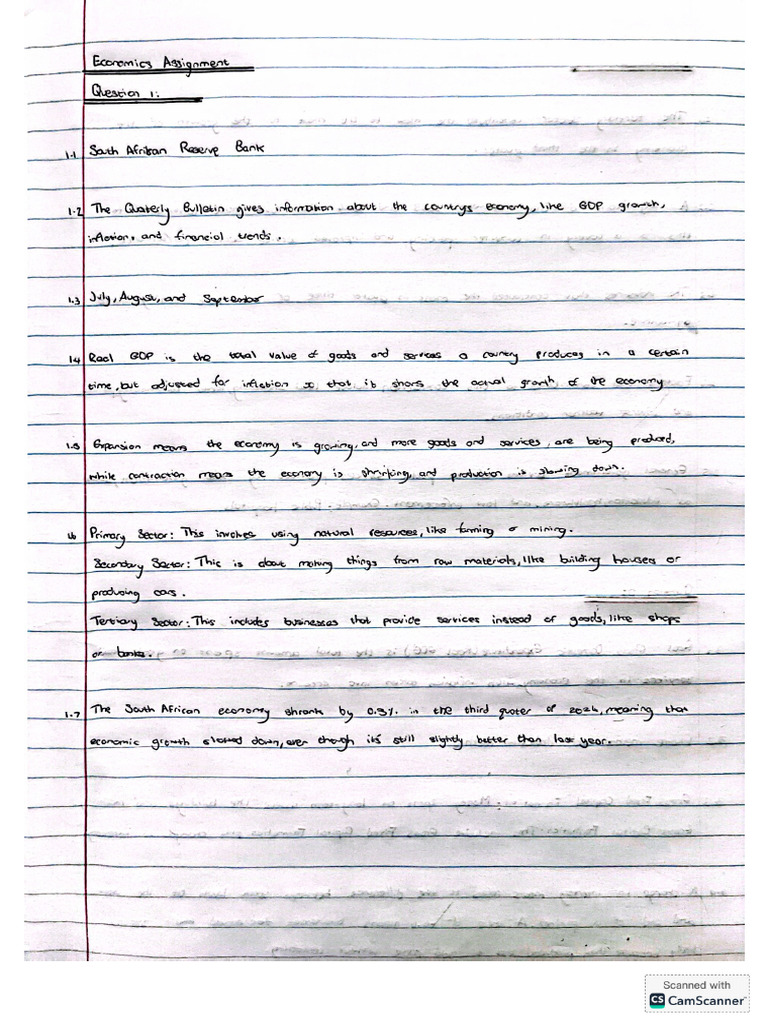 Economics Assignment
Question 1:
1.1 South African Reserve Bank
1.2 The Quaterly Bulletin gives information about the countrys economy, like GDP growth,
inflation, and financial trends.
1.3 July, August, and September
1.4 Real GDP is the total value of goods and services a country produces in a certain
time, but adjusted for inflation so that it shows the actual growth of the economy
1.5 Expansion means the economy is growing, and more goods and services, are being produced,
while contraction means the economy is shrinking, and production is slowing down.
1.6 Primary Sector: This involves using natural resources, like farming or mining.
Secondary Sector: This is about making things from raw materials, like building houses or
producing cars.
Tertiary Sector: This includes businesses that provide services instead of goods, like shops
or banks.
1.7 The South African economy shrank by 0.3% in the third quater of 2024, meaning that
economic growth slowed down, even though it's still slightly better than last year.
Scanned with
CS CamScanner